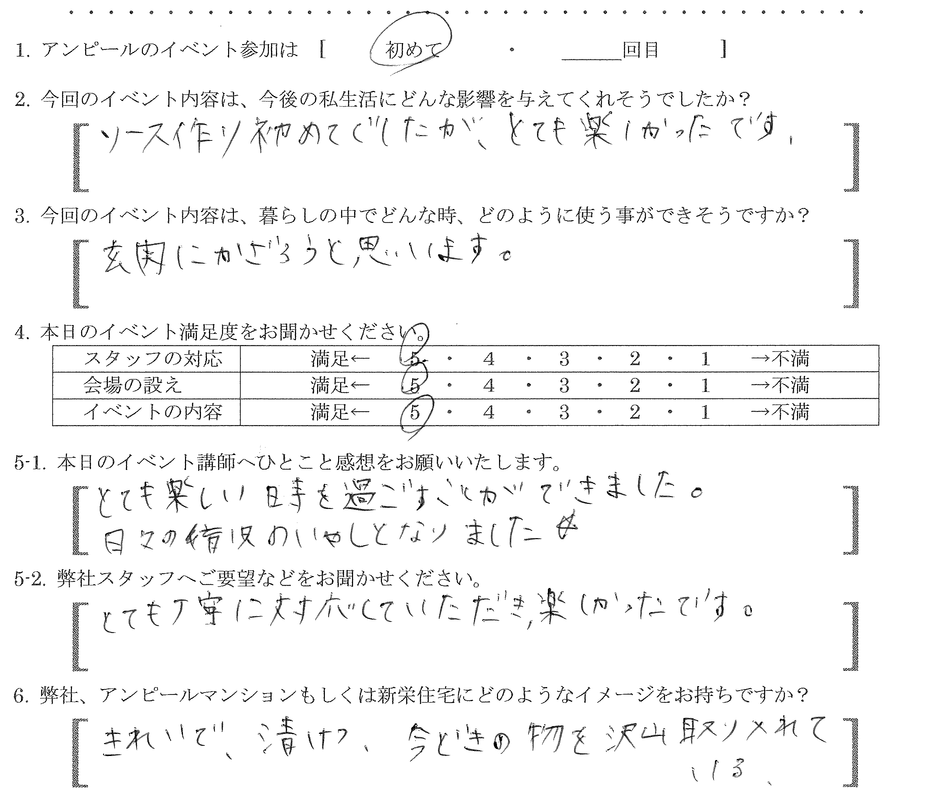 1. アンピールのイベント参加は [ 初めて ・ ＿＿＿回目 ]
2. 今回のイベント内容は、今後の私生活にどんな影響を与えてくれそうでしたか？
ソース作り初めてでしたが、とても楽しかったです.
3. 今回のイベント内容は、暮らしの中でどんな時、どのように使う事ができそうですか？
玄関にかざろうと思います。
4. 本日のイベント満足度をお聞かせください。
スタッフの対応 満足← 5 ・ 4 ・ 3 ・ 2 ・ 1 →不満
会場の設え 満足← 5 ・ 4 ・ 3 ・ 2 ・ 1 →不満
イベントの内容 満足← 5 ・ 4 ・ 3 ・ 2 ・ 1 →不満
5-1. 本日のイベント講師へひとこと感想をお願いいたします。
とても楽しい時を過ごすことができました。
日々の育児のいやしとなりました☆
5-2. 弊社スタッフへご要望などをお聞かせください。
とても丁寧に対応していただき,楽しかったです。
6. 弊社、アンピールマンションもしくは新栄住宅にどのようなイメージをお持ちですか？
きれいで、清けつ、今どきの物を沢山取り入れて
いる、